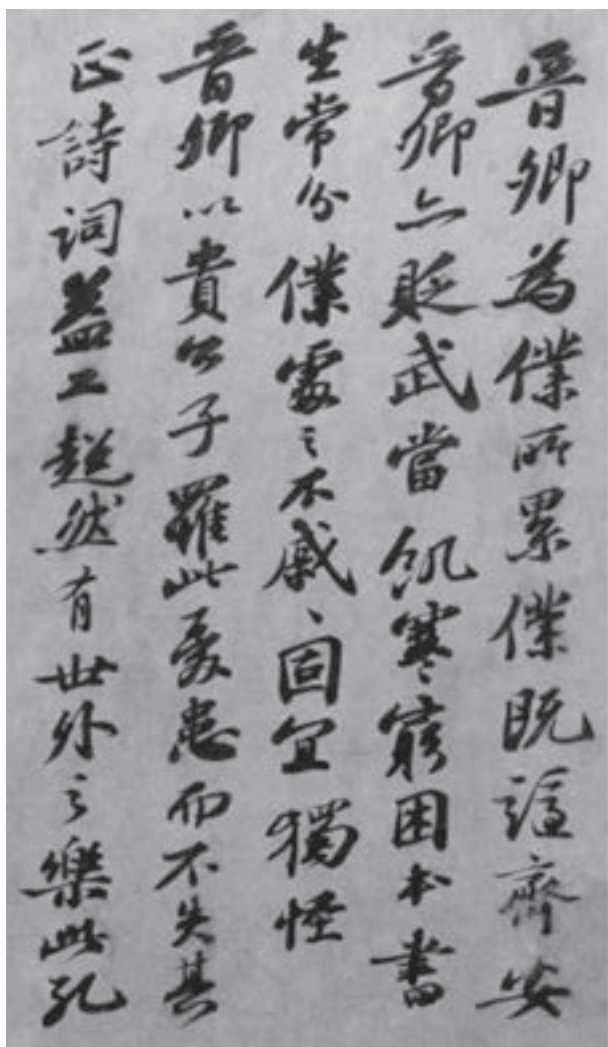 晉卿為僕所累僕既謫齊安
晉卿亦貶武當飢寒窮困本書
生常分僕處之不戚戚固宜獨怪
晉卿以貴公子罹此憂患而不失其
正詩詞益工超然有世外之樂此孔